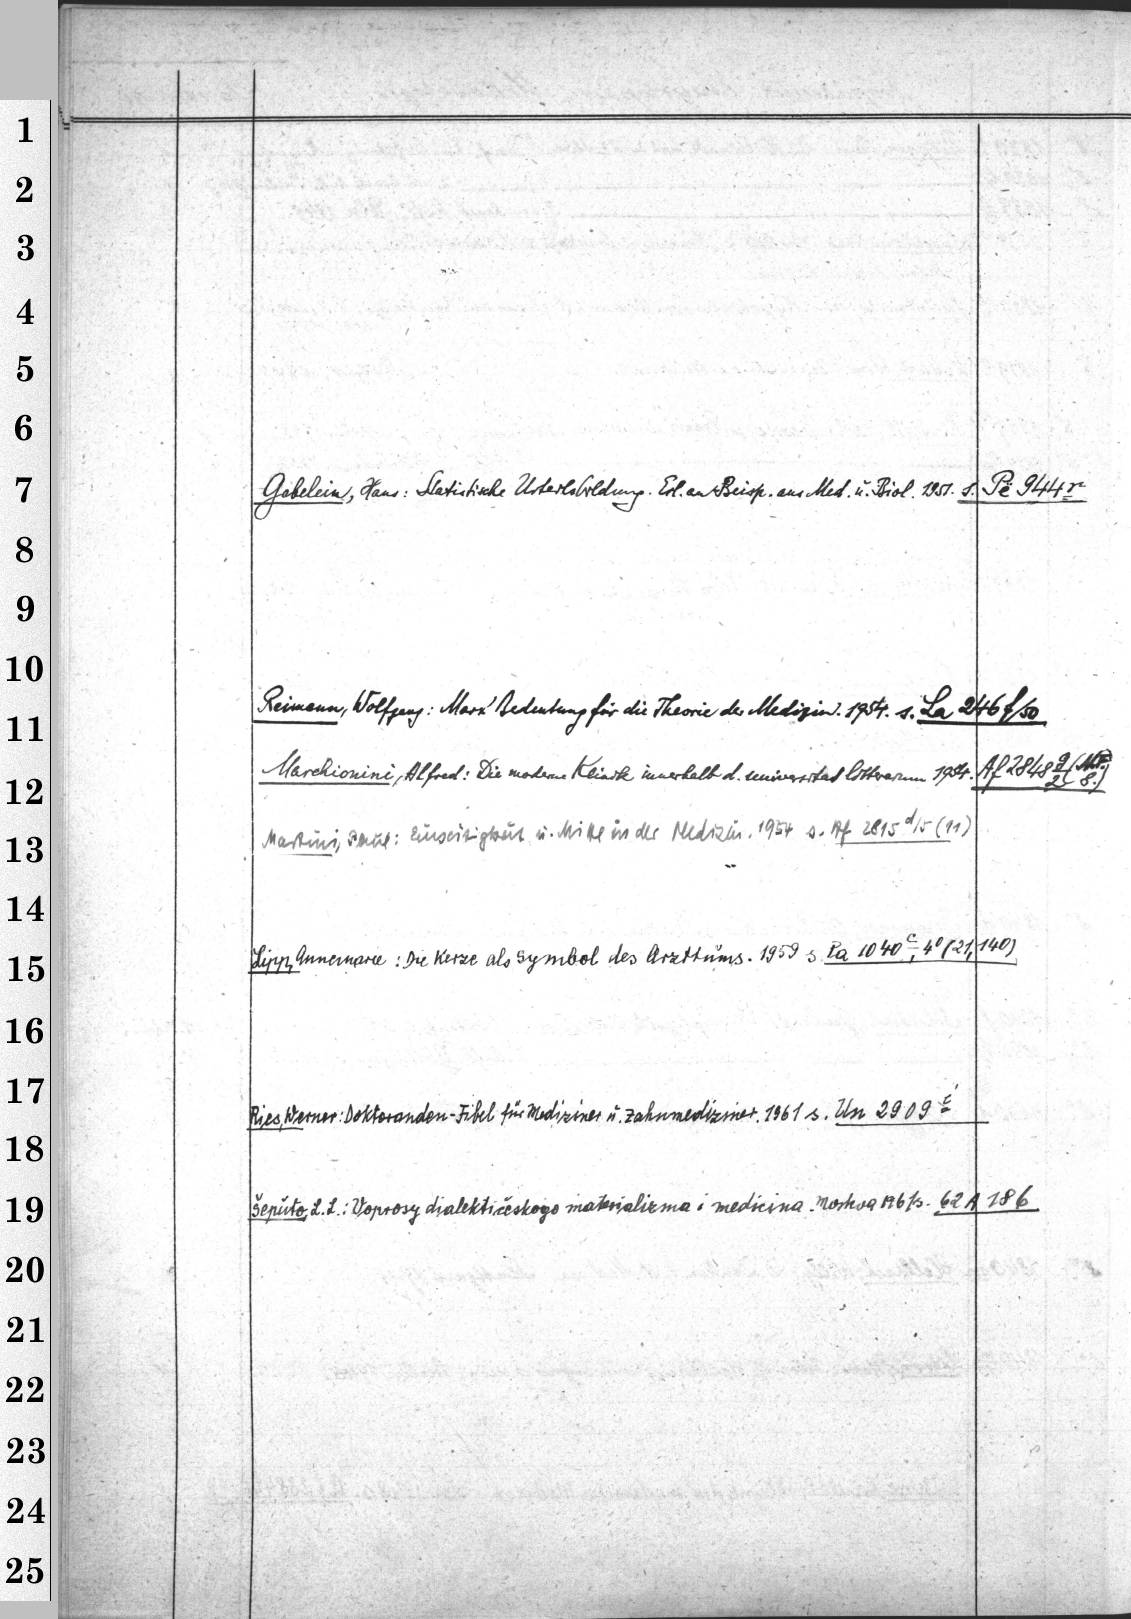 1
2
3
4
5
6
7 Gebelein, Hans: Statistische Urteilsbildung. Erl. an Beisp. aus Med. u. Biol. 1951. s. Pe 944 r
8
9
10
11 Reimann, Wolfgang: Marx' Bedeutung für die Theorie der Medizin. 1954. s. La 246 f/50
12 Marchionini, Alfred: Die moderne Klinik innerhalb d. universitas litterarum 1954. Af 2848 g/2 (8.)
13 Martini, Paul: Einseitigkeit u. Mitte in der Medizin. 1954 s. Af 2815 d/5 (11)
14
15 Lipp, Annemarie: Die Kerze als Symbol des Arzttums. 1959 s. Pa 1040 c, 4° (21, 140)
16
17
Ries, Werner: Doktoranden-Fibel für Mediziner u. Zahnmediziner. 1961 s. Un 2909
18
19 Šeputo, L. L.: Voprosy dialektičeskogo materializma i medicina. Moskva 1961 s. 62 A 186
20
21
22
23
24
25